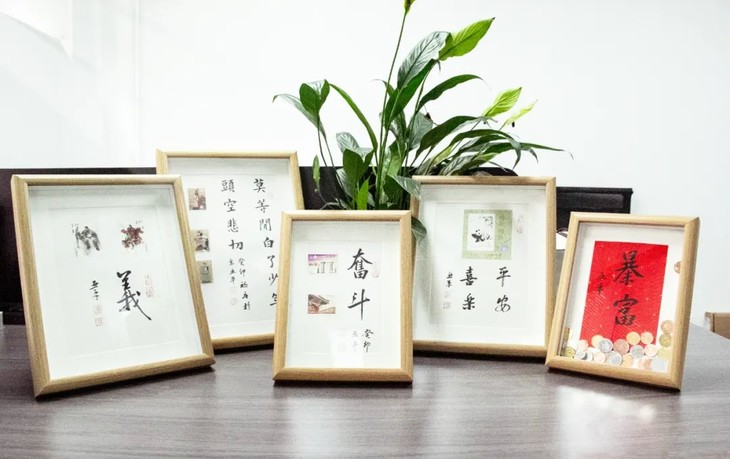 義
莫等閒白了少年
頭空悲切
癸卯
奮斗
癸卯
平安
喜樂
暴富